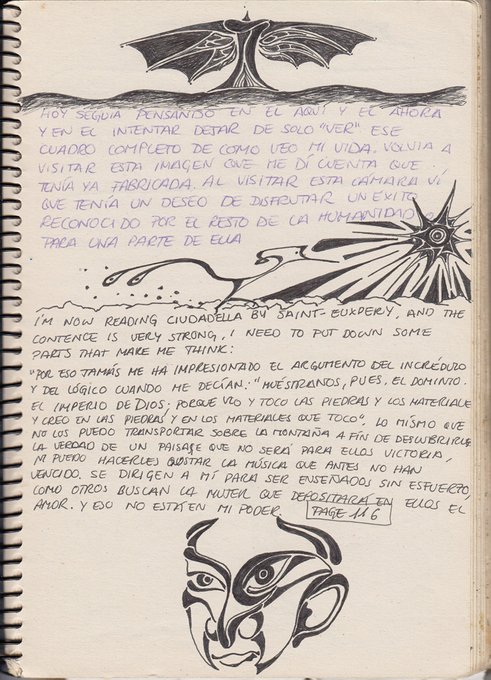 HOY SEGUIA PENSANDO EN EL AQUÍ Y EL AHORA
Y EN EL INTENTAR DEJAR DE SOLO "VER" ESE
CUADRO COMPLETO DE COMO VEO MI VIDA. VOLVIA A
VISITAR ESTA IMAGEN QUE ME DÍ CUENTA QUE
TENÍA YA FABRICADA. AL VISITAR ESTA CÁMARA VÍ
QUE TENÍA UN DESEO DE DISFRUTAR UN EXITO
RECONOCIDO POR EL RESTO DE LA HUMANIDAD O
PARA UNA PARTE DE ELLA
I'M NOW READING CIUDADELLA BY SAINT-EUXPERY, AND THE
CONTENCE IS VERY STRONG, I NEED TO PUT DOWN SOME
PARTS THAT MAKE ME THINK:
"POR ESO JAMÁS ME HA IMPRESIONADO EL ARGUMENTO DEL INCRÉDULO
Y DEL LÓGICO CUANDO ME DECÍAN: "MUÉSTRANOS, PUES, EL DOMINIO.
EL IMPERIO DE DIOS; PORQUE VEO Y TOCO LAS PIEDRAS Y LOS MATERIALES
Y CREO EN LAS PIEDRAS Y EN LOS MATERIALES QUE TOCO". LO MISMO QUE
NO LOS PUEDO TRANSPORTAR SOBRE LA MONTAÑA A FIN DE DESCUBRIRLES
LA VERDAD DE UN PAISAJE QUE NO SERÁ PARA ELLOS VICTORIA,
NI PUEDO HACERLES GUSTAR LA MÚSICA QUE ANTES NO HAN
VENCIDO. SE DIRIGEN A MÍ PARA SER ENSEÑADOS SIN ESFUERZO,
COMO OTROS BUSCAN LA MUJER QUE DEPOSITARÁ EN ELLOS EL
AMOR. Y ESO NO ESTÁ EN MI PODER. PAGE 116